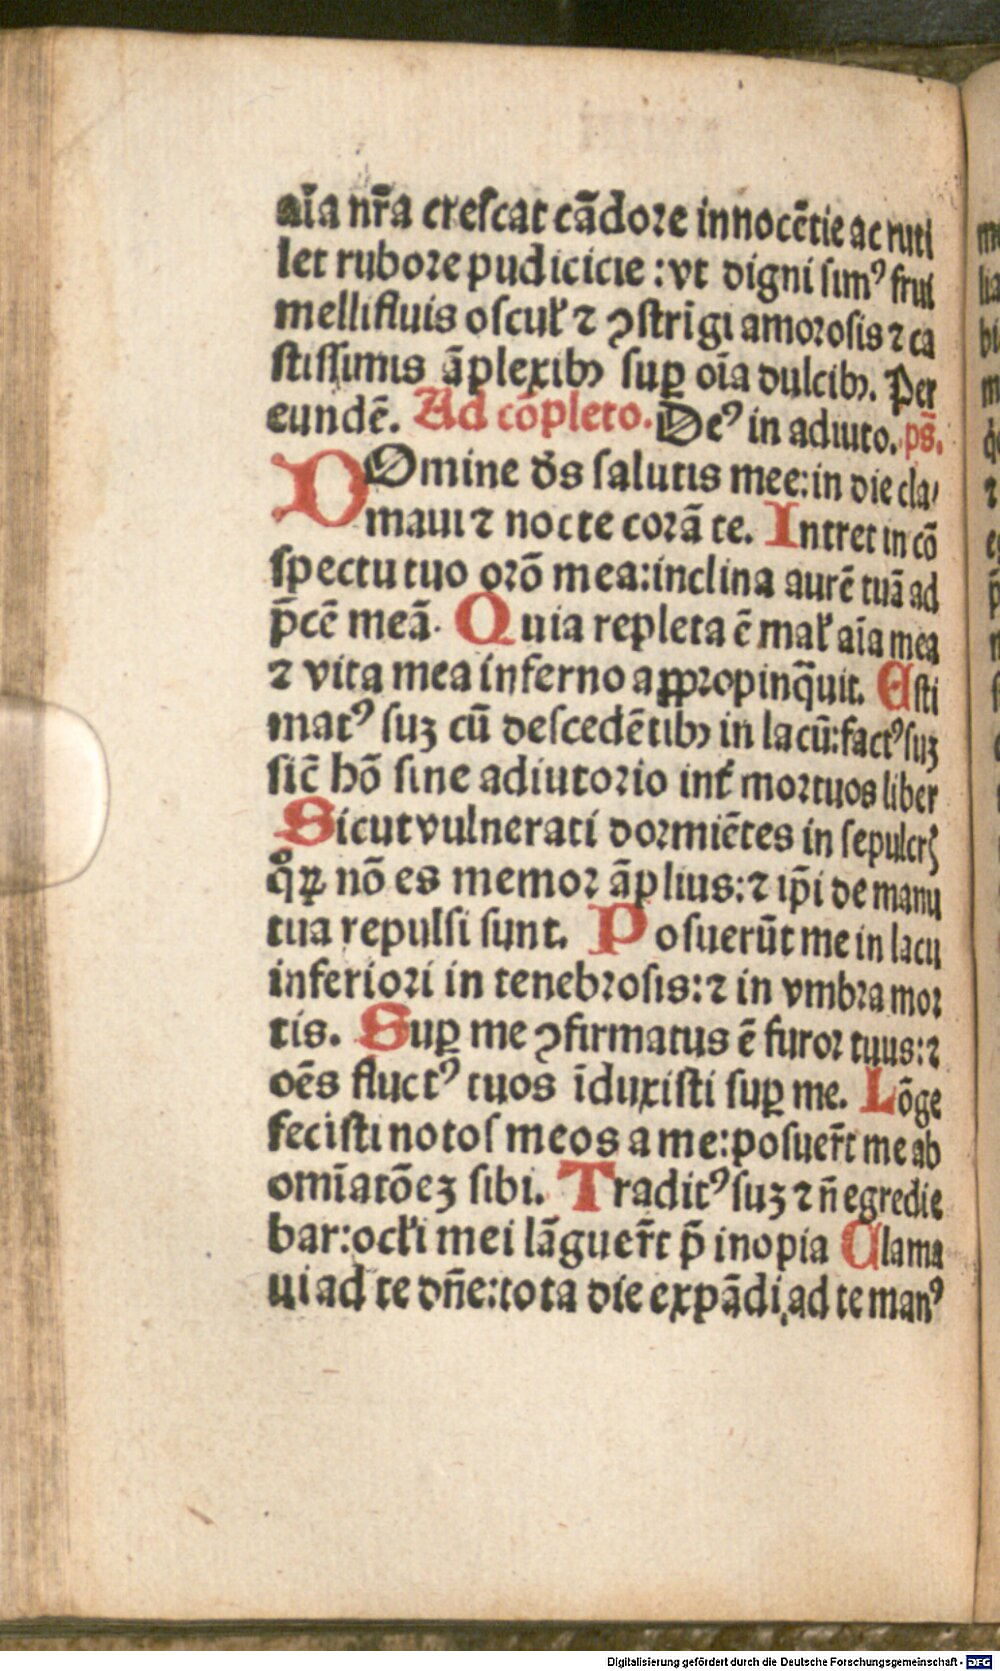 aı̄a nr̄a creſcat cādore innocētie ac ruti
let rubore pudicicie : vt digni ſimꝰ frui
mellifluis oſcuł ⁊ ꝯſtrīgi amoroſis ⁊ ca
ſtiſſimis āplexibꝫ ſuꝑ oı̄a dulcibꝫ. Per
eundē. Ad cōpleto. Deꝰ in adiuto. ps̄.
DOmine ds̄ ſalutis mee: in die cla/
maui ⁊ nocte corā te. Intret in cō
ſpectu tuo orō mea: inclina aurē tuā ad
p̄cē meā. Quia repleta ē mał aı̄a mea
⁊ vita mea inferno appropinq̄uit. Eſti
matꝰ ſuꝫ cū deſcedētibꝫ in lacū: factꝰ ſuꝫ
ſic̄ hō ſine adiutorio int̄ mortuos liber
Sicut vulnerati dormiētes in ſepulcrꝭ
qͦꝝ nō es memor āplius: ⁊ ip̄i de manu
tua repulſi ſunt. Poſuerūt me in lacu
inferiori in tenebroſis: ⁊ in vmbra mor
tis. Suꝑ me ꝯfirmatus ē furor tuus: ⁊
oēs fluctꝰ tuos īduxiſti ſuꝑ me. Lōge
feciſti notoſ meos a me: poſuer̄t me ab
omīatōeꝫ ſibi. Traditꝰ ſuꝫ ⁊ n̄ egredie
bar: ocłi mei lāguer̄t p̄ inopia Clama
ui ad te dn̄e: tota die expādi ad te manꝰ
Digitalisierung gefördert durch die Deutsche Forschungsgemeinschaft - DFG